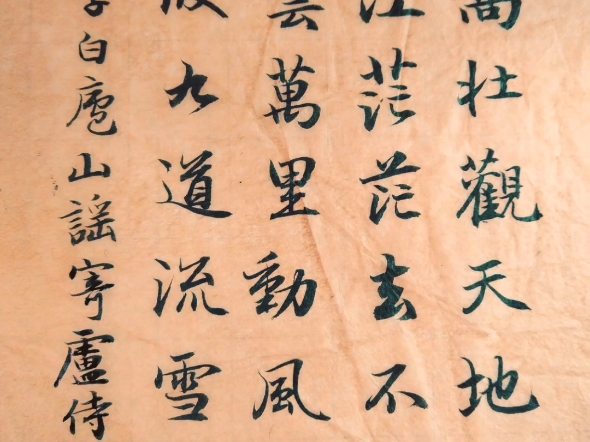 高壯觀天地
江茫茫去不
雲萬里動風
波九道流雪
李白廬山謠寄盧侍